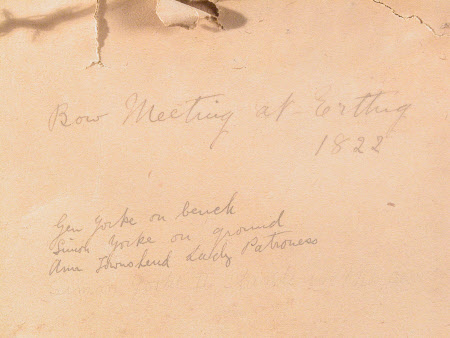 Bow Meeting at Erthig
1822
Gen Yorke on bench
Simon Yorke on ground
Ann Townshend Lady Patroness